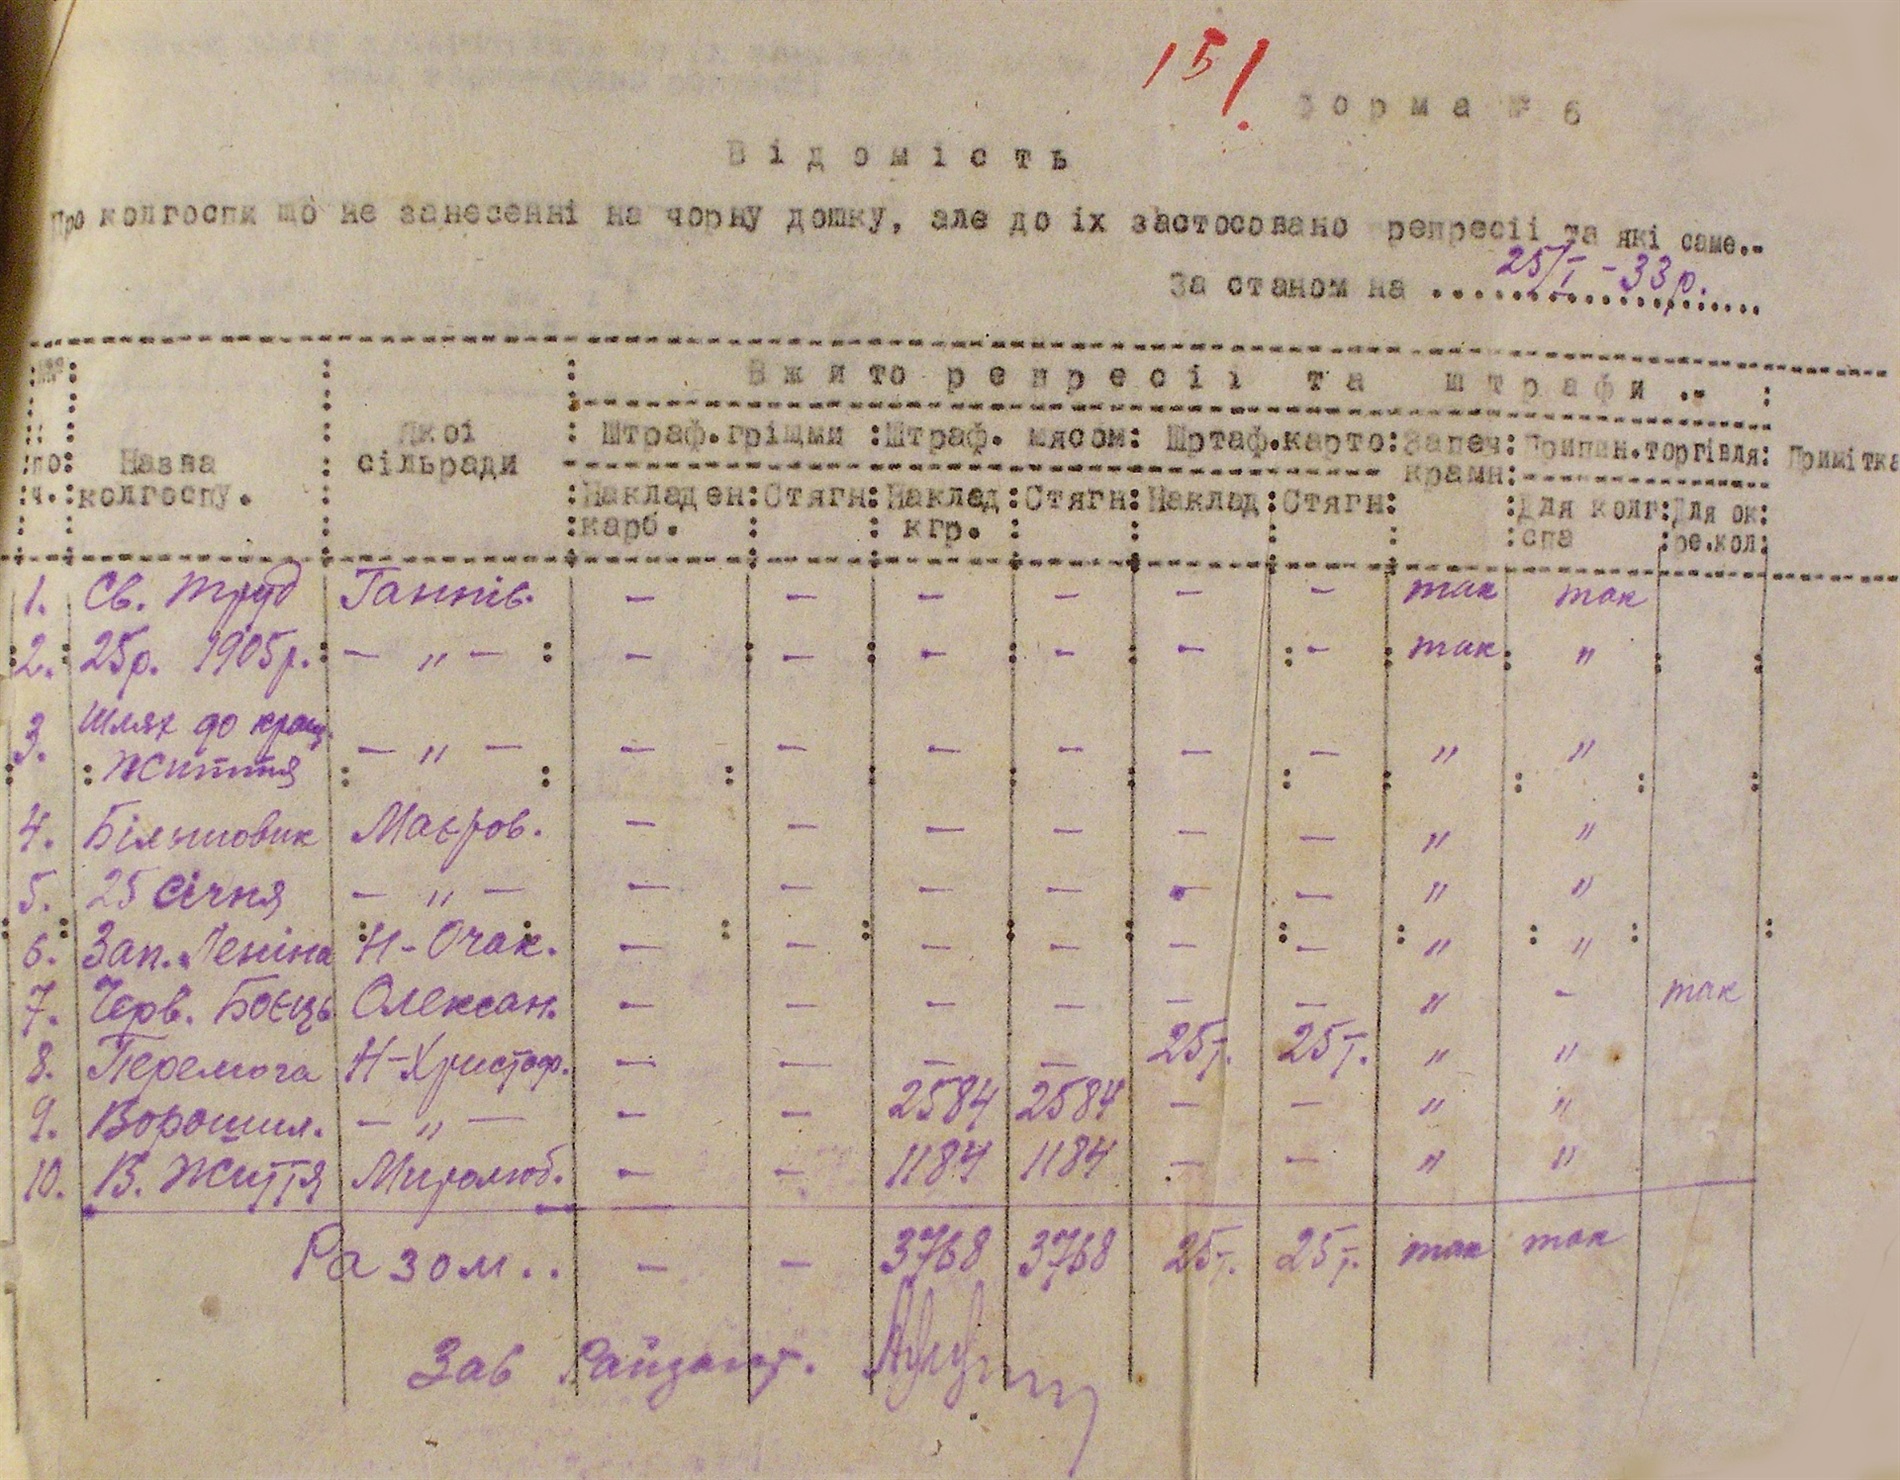 151.
форма № 6
Відомість
Про колгоспи що не занесенні на чорну дошку, але до їх застосовано репресії та які саме.-
за станом на .................... 25/I - 33 р.
№ Вжито репресії та штрафи .-
Якої Штраф.гріщми Штраф. мясом Шртаф.карто Запеч Припин.торгівля Примітка
по Назва сільради крамн
ч. колгоспу. Накладен Стягн Наклад Стягн Наклад Стягн Для колг Для ок
карб. кгр. спа ре.кол
1. Св. труд Ганнів. — — — — — — так так
2. 25р. 1905р. — „ — — — — — — — так "
3. Шлях до кращ. — „ — — — — — — — " "
життя
4. Більшовик Маєров. — — — — — — " "
5. 25 січня — „ — — — — — — — " "
6. Зап. Леніна Н-Очак. — — — — — — " "
7. Черв. Боєць Олексан. — — — — — — " - так
8. Перемога Н-Христоф. — — — — 25т. 25т. " "
9. Ворошил. — „ — — — 2584 2584 — — " "
10. В. Життя Миролюб. — — 1184 1184 — — " "
Разом.. — — 3768 3768 25т. 25т. так так
Зав